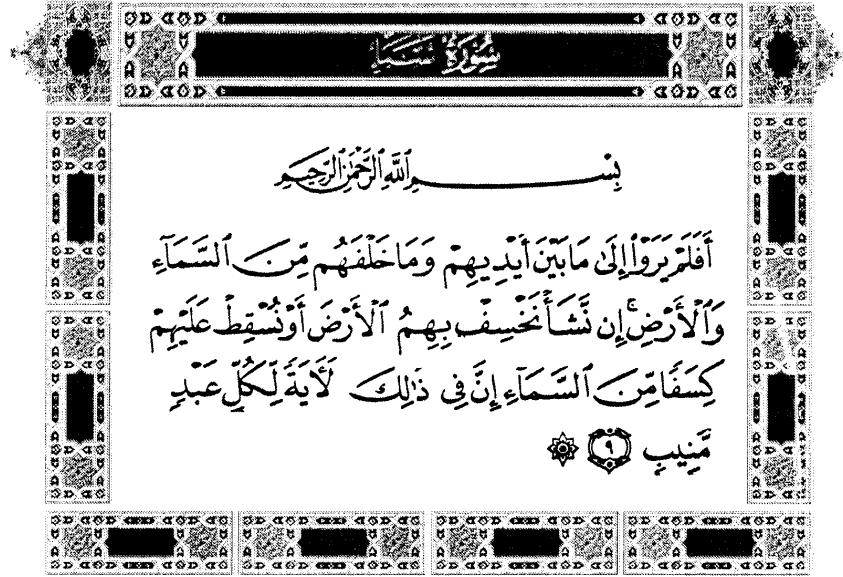 سُورَةُ سَبَإٍ
بِسْمِ ٱللَّهِ ٱلرَّحْمَٰنِ ٱلرَّحِيمِ
أَفَلَمْ يَرَوْا۟ إِلَىٰ مَا بَيْنَ أَيْدِيهِمْ وَمَا خَلْفَهُم مِّنَ ٱلسَّمَآءِ
وَٱلْأَرْضِ ۚ إِن نَّشَأْ نَخْسِفْ بِهِمُ ٱلْأَرْضَ أَوْ نُسْقِطْ عَلَيْهِمْ
كِسَفًا مِّنَ ٱلسَّمَآءِ إِنَّ فِى ذَٰلِكَ لَـَٔايَةً لِّكُلِّ عَبْدٍ
مُّنِيبٍ ٩